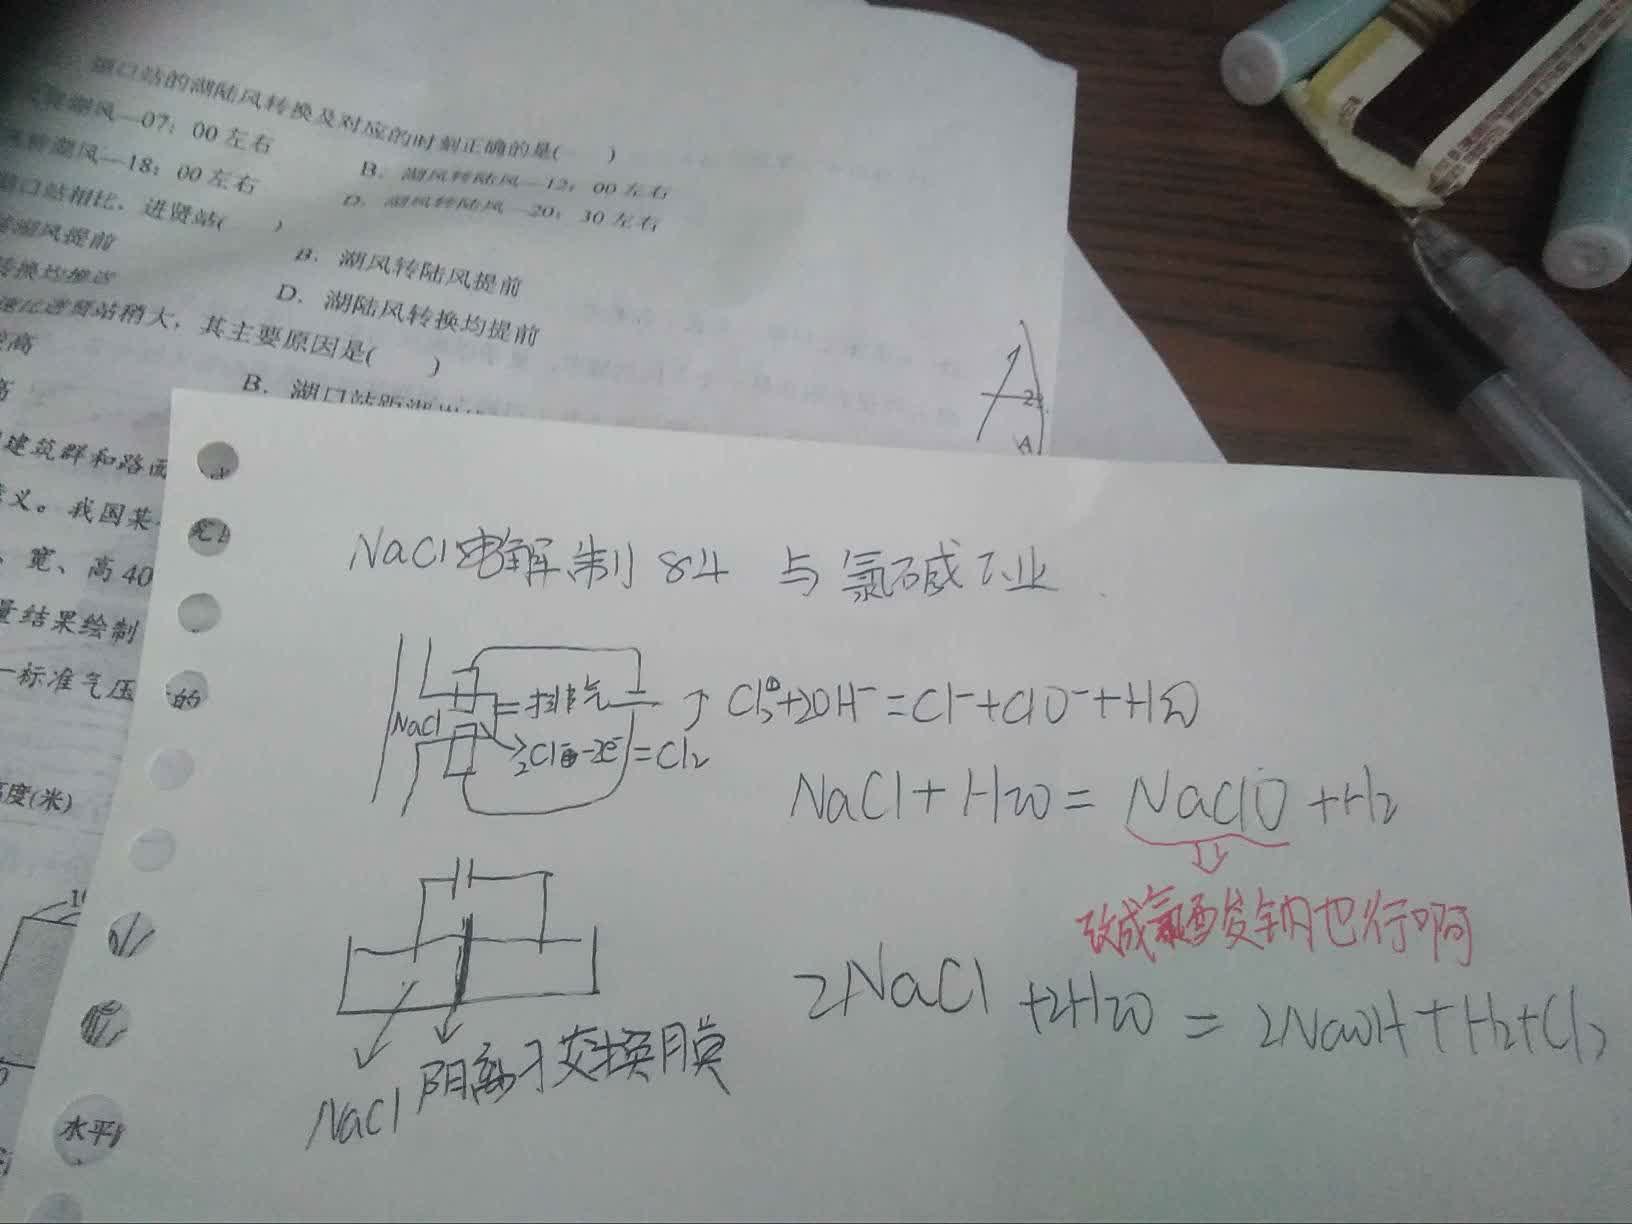 湖口站的湖陆风转换及对应的时刻正确的是(  )
湖风—07：00左右
B．湖风转陆风—12：00左右
湖风—18：00左右
D．湖风转陆风—20：30左右
湖口站相比，进贤站(  )
湖风提前
B．湖风转陆风提前
转换均推迟
D．湖陆风转换均提前
速比进贤站稍大，其主要原因是(  )
高
B．湖口站距湖
高
建筑群和路面
义。我国某
、宽、高40
量结果绘制
一标准气压
的
高度(米)
水平
2
A
NaCl电解制84 与氯碱工业
NaCl
=排气
Cl₂+2OH⁻=Cl⁻+ClO⁻+H₂O
2Cl⁻-2e⁻=Cl₂
NaCl+H₂O=NaClO+H₂
改成氯酸钠也行啊
2NaCl+2H₂O=2NaOH+H₂+Cl₂
NaCl
阳离子交换膜